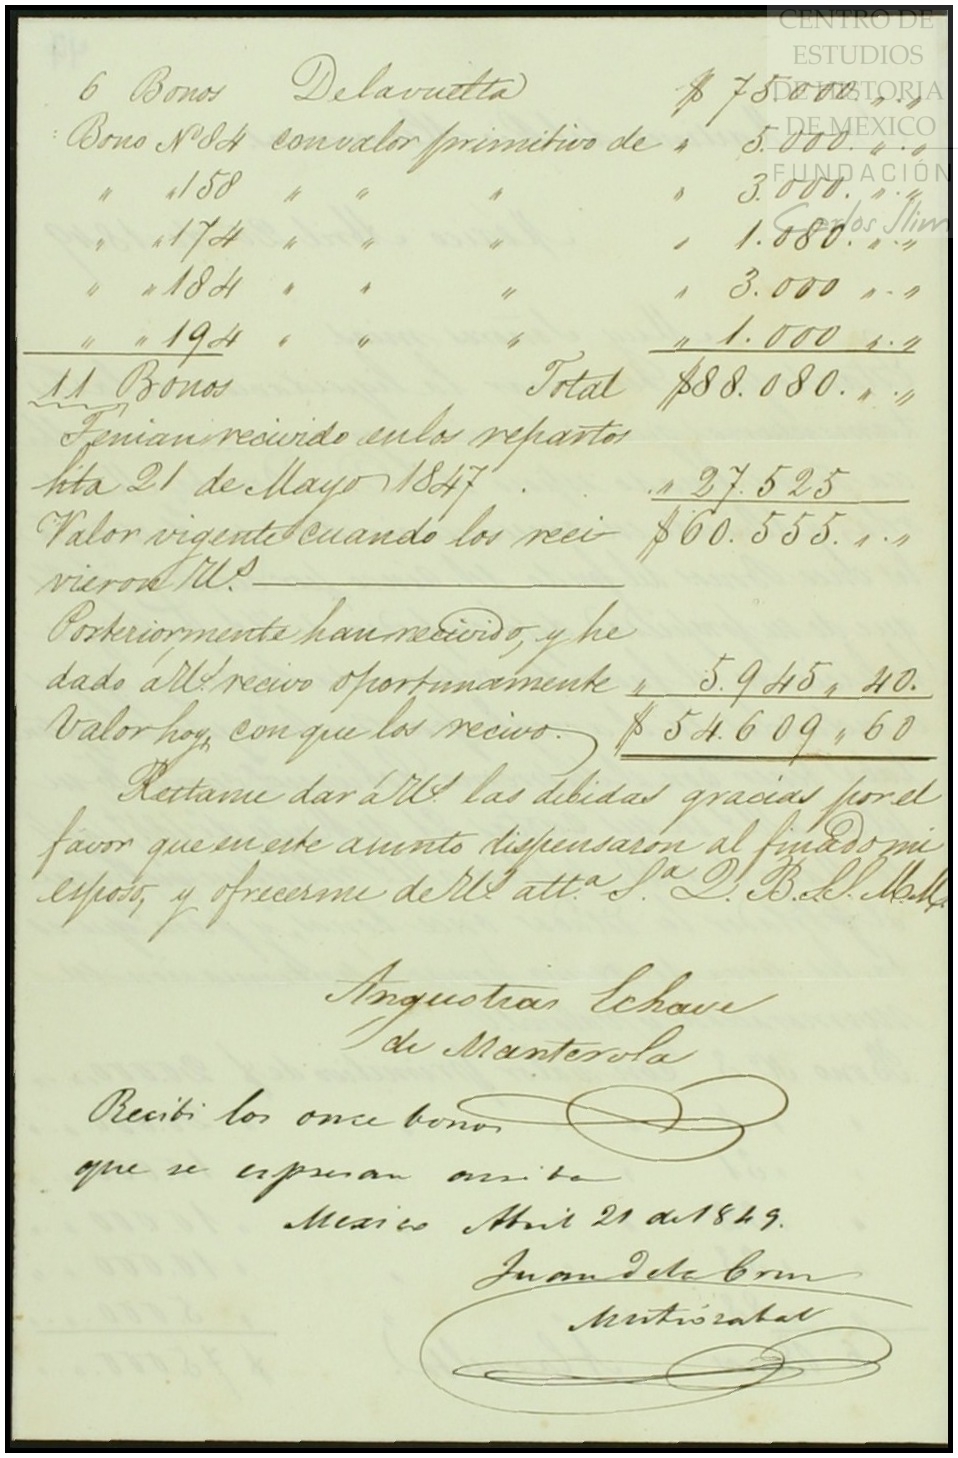 CENTRO DE
ESTUDIOS
DE HISTORIA
DE MEXICO
FUNDACIÓN
Carlos Slim
6 Bonos De la vuelta $ 75.000. „.„
Bono Nº 84 con valor primitivo de „ 5.000. „.„
„ „ 158 „ „ „ „ 3.000. „.„
„ „ 174 „ „ „ „ 1.080. „.„
„ „ 184 „ „ „ „ 3.000 „.„
„ „ 194 „ „ „ „ 1.000 „.„
11 Bonos Total $88.080. „.„
Tenian recivido en los repartos
hta 21 de Mayo 1847 . . „ 27.525
Valor vigente cuando los reci- $60.555. „.„
vieron Us.
Posteriormente han recivido, y he
dado á Us. recivo oportunamente „ 5.945 „ 40.
Valor hoy, con que los recivo. $ 54.609 „ 60
Restame dar á Us. las debidas gracias por el
favor que en este asunto dispensaron al finado mi
esposo, y ofrecerme de Us. attª Sª Q. B. S. S. M. M.
Angustias Echave
de Manterola
Recibi los once bonos
que se espresan arriba
Mexico Abril 21 de 1849.
Juan de la Cruz